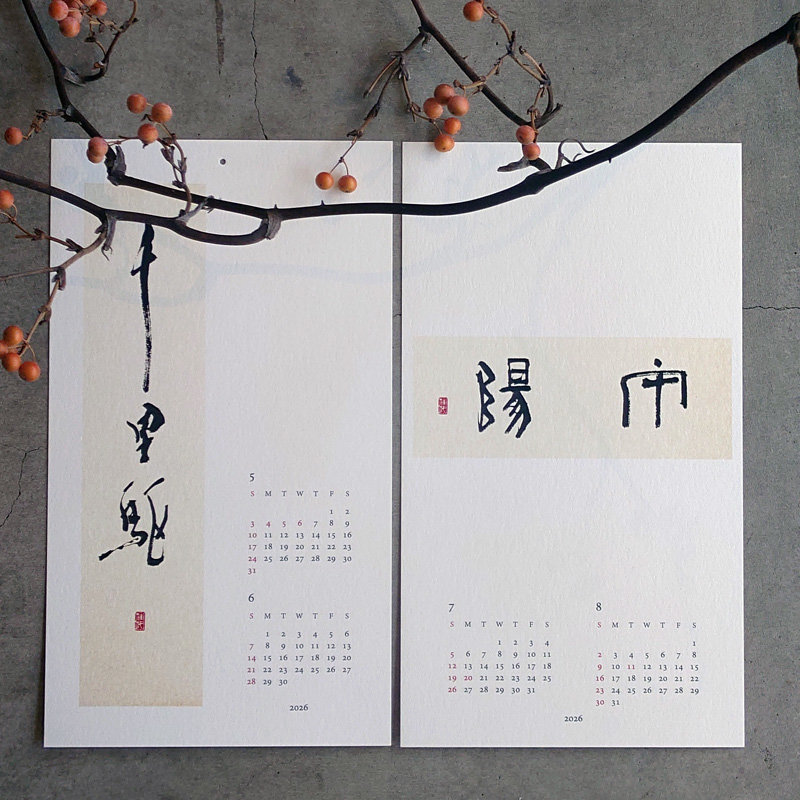 千里駆
5
S M T W T F S
1 2
3 4 5 6 7 8 9
10 11 12 13 14 15 16
17 18 19 20 21 22 23
24 25 26 27 28 29 30
31
6
S M T W T F S
1 2 3 4 5 6
7 8 9 10 11 12 13
14 15 16 17 18 19 20
21 22 23 24 25 26 27
28 29 30
2026
陽
7
S M T W T F S
1 2 3 4
5 6 7 8 9 10 11
12 13 14 15 16 17 18
19 20 21 22 23 24 25
26 27 28 29 30 31
8
S M T W T F S
1
2 3 4 5 6 7 8
9 10 11 12 13 14 15
16 17 18 19 20 21 22
23 24 25 26 27 28 29
30 31
2026